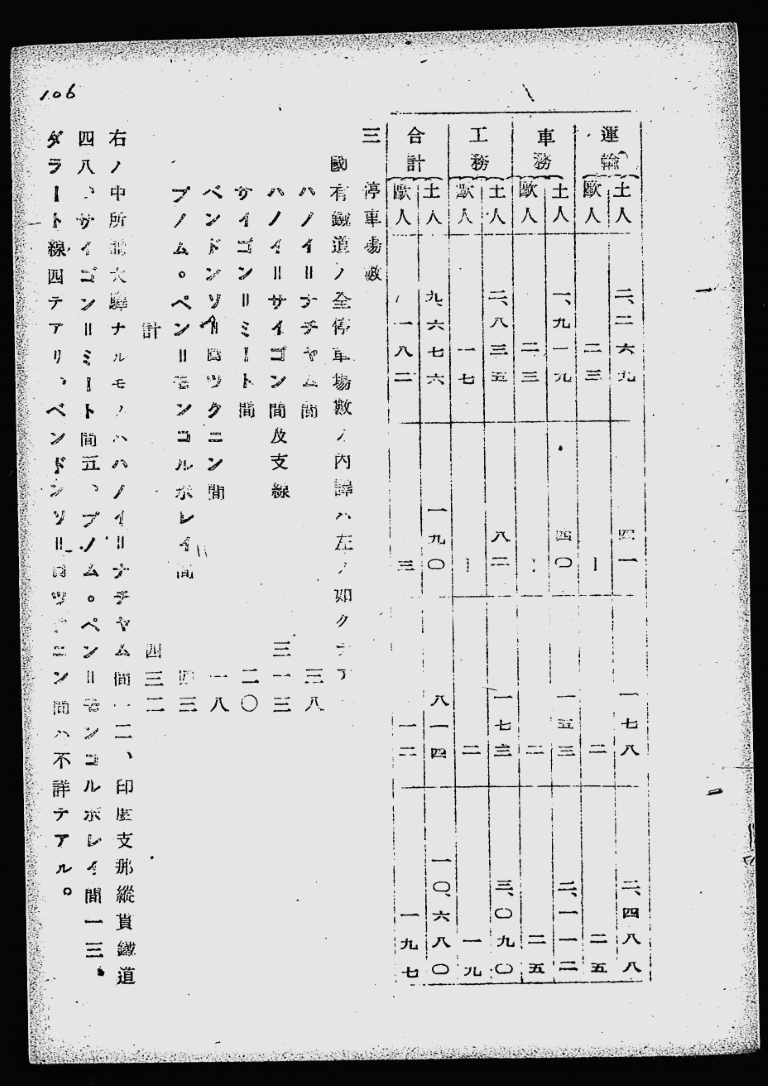 106
運輸 土人 二、二六九 四一 一七八 二、四八八
歐人 二三 一 二 二五
車務 土人 一、九一九 四〇 一五三 二、一一二
歐人 二三 一 二 二五
工務 土人 二、八三五 八二 一七三 三、〇九〇
歐人 一七 一 二 一九
合計 土人 九、六七六 一九〇 八一四 一〇、六八〇
歐人 一八二 三 一二 一九七
三 停車場數
國有鐵道ノ全停車場數ノ內譯ハ左ノ如クデア
ハノイ=ナチヤム間 三八
ハノイ=サイゴン間及支線 三一三
サイゴン=ミート間 二〇
ベンドンソ=ロツクニン間 一八
プノム。ペン=モンコルボレイ間 四三
計 四三二
右ノ中所謂大驛ナルモノハハノイ=ナチヤム間一二、印度支那縱貫鐵道
四八、サイゴン=ミート間五、プノム。ペン=モンゴルボレイ間一三、
ダラート線四デアリ、ベンドンソ=ロツクニン間ハ不詳デアル。